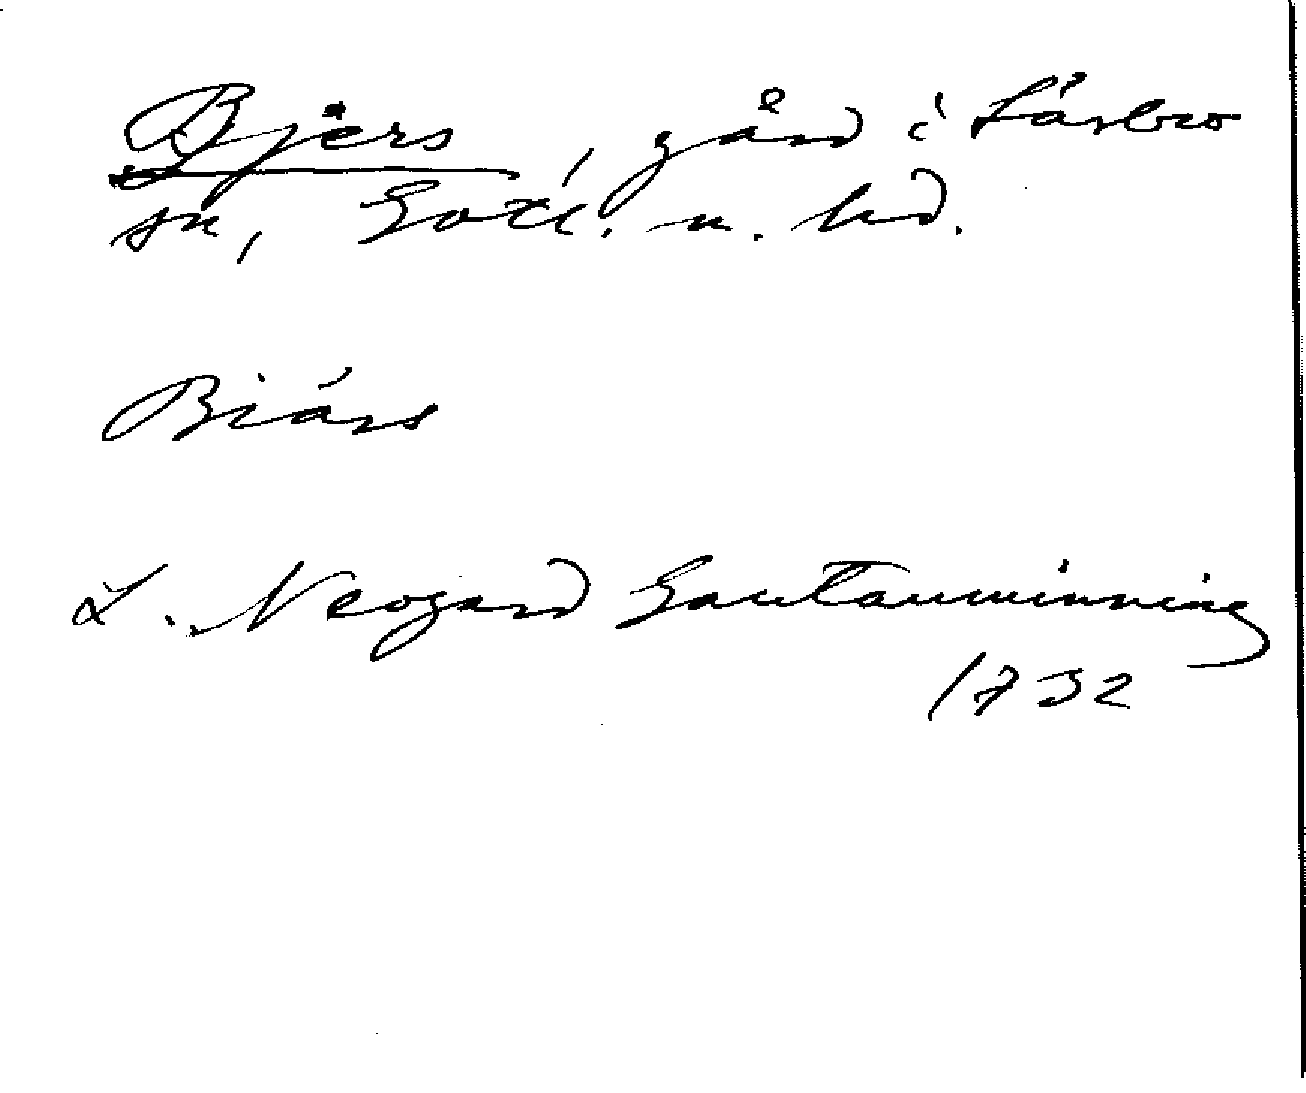 Bjers, gård i Lärbro
sn, Gotl. n. hd.
Biärs
L. Neogard Gautauminning
1732